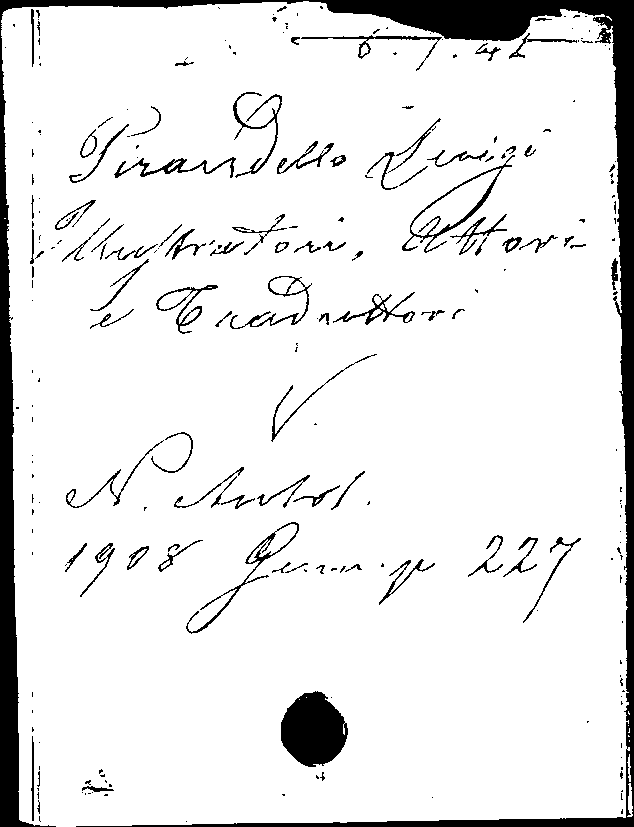 6.1.42
Pirandello Luigi
Illustratori, Attori
e Traduttori
V.
N. Antol.
1908 Genn. p 227